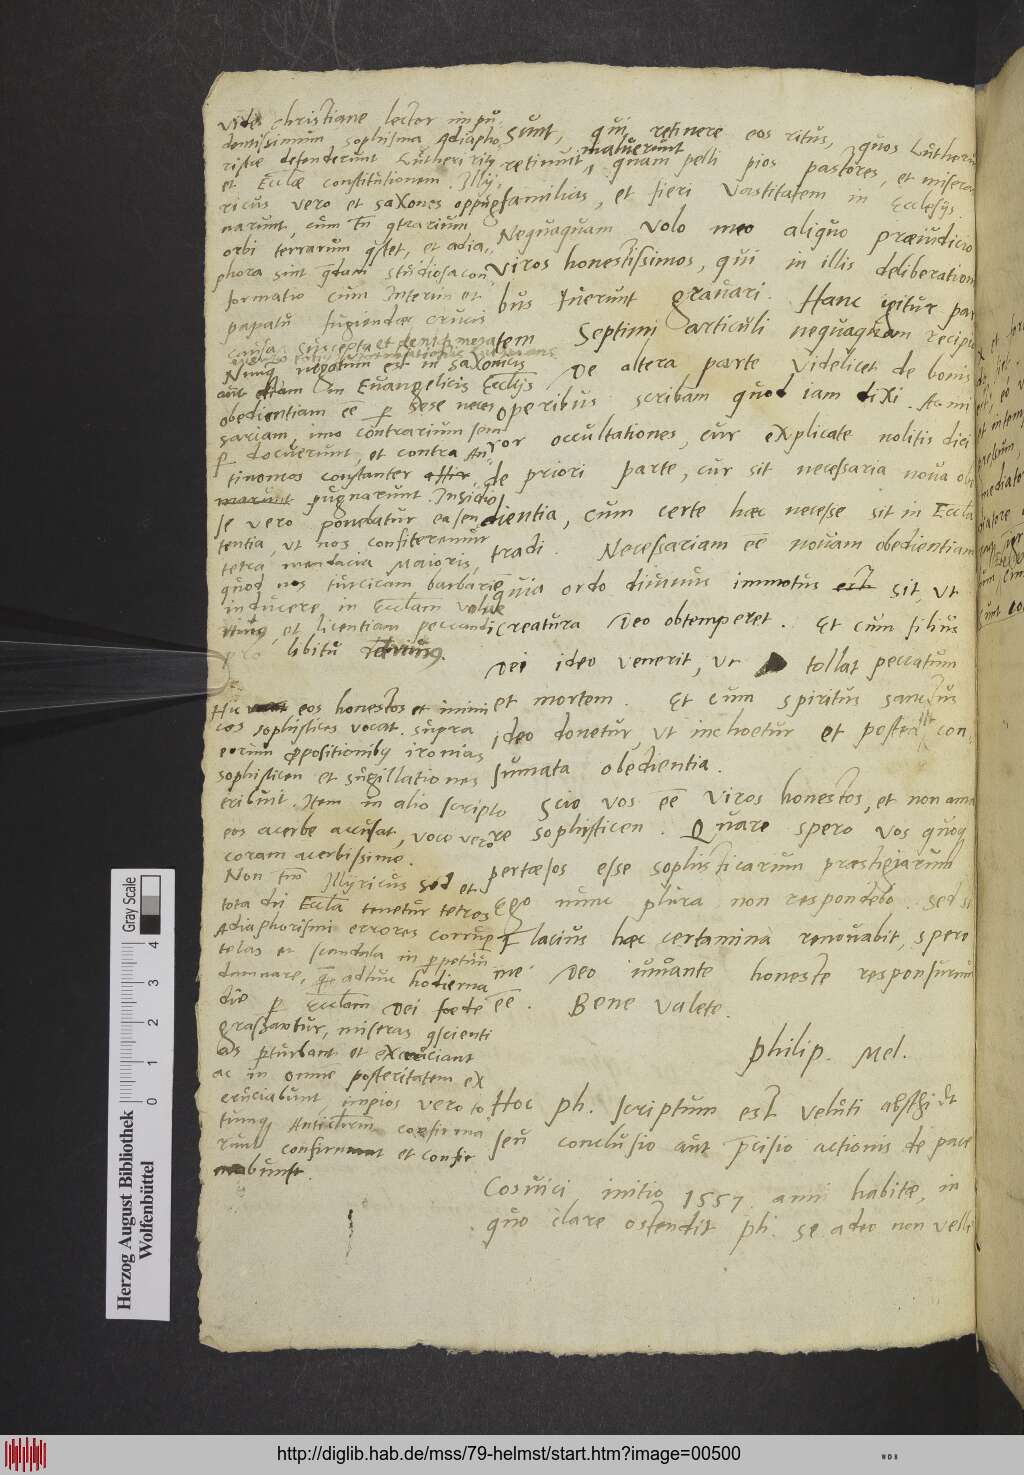 Vide christiane lector impu-
dentissimum sophisma Adiapho,
ristae defenderunt Lutheri rit9
et Eccłae constitutionem. Illy,
ricus vero et saxones oppug
narunt, cum tñ contrarium
orbi terrarum constet, et adia,
phora sint quaedam studiosa con
formatio cum Interim et
papatu fugiendae crucis
causa suscepta et
Nunq negatum est in saxonicis
aut etiam in Euangelicis Eccłijs
obedientiam eē per sese neces
sariam, imo contrarium sem
per docuerunt, et contra An
tinomos constanter
pugnarunt. Insidio
se vero ponebatur ea sen
tentia, ut nos confiteremur
tetra mendacia Maioris,
quod nos turcicam barbariē
inducere in Eccłam
et licentiam peccandi
pro libitu
Hic eos honestos et inimi
cos sophistices vocat. supra
eorum propositionibus ironias
sophisticen et sugillationes
scribunt. Item in alio scripto
eos acerbe accusat, voce vero
coram acerbissime.
Non tm̄ Illyricus sed et
tota dei Eccła tenetur tetros
Adiaphorismi errores corrup
telas et scandala in perpetuū
damnare, quae adhuc hodierna
die per Eccłam Dei foede
grassantur, miseras conscienti
as perturbant et excruciant
ac in omne posteritatem ex
cruciabunt, impios vero to
tumq Antichrm̄ confirma
runt confirmant et confir
mabunt.
sunt, qui retinere eos ritus, quos Lutherus
retinuit, maluerunt quam pelli pios pastores, et miseras
familias, et fieri vastitatem in Ecclesijs.
Nequaquam volo meo aliquo praeiudicio
viros honestissimos, qui in illis deliberationi
bus fuerunt grauari. Hanc igitur par
tem Septimi articuli nequaquam recipio
De altera parte videlicet de bonis
operibus scribam quod iam dixi. Ac mi
ror occultationes, cur explicate nolitis dici
de priori parte, cur sit necessaria noua obe
dientia, cum certe haec necesse sit in Eccła
tradi. Necessariam eē nouam obedientiam
quia ordo diuinus immotus est sit, ut
creatura Deo obtemperet. Et cum filius
Dei ideo venerit, ut tollat peccatum
et mortem. Et cum spiritus sanctus
ideo donetur, ut inchoetur et postea sit con,
sumata obedientia.
Scio vos eē viros honestos, et non ama
re sophisticen. Quare spero vos quoq
pertaesos esse sophisticarum praestigiarum
Ego nunc plura non respondebo. Sed si
Flacius haec certamina renouabit, spero
me Deo iuuante honeste responsurum
eē. Bene valete.
Philip. Mel.
Hoc ph. scriptum est veluti
seu conclusio aut actionis de pace
Cosuici initio 1557 anni habitae, in
quo clare ostendit ph. se adeo non velle
Herzog August Bibliothek
Wolfenbüttel
0 1 2 3 4
Gray Scale
http://diglib.hab.de/mss/79-helmst/start.htm?image=00500